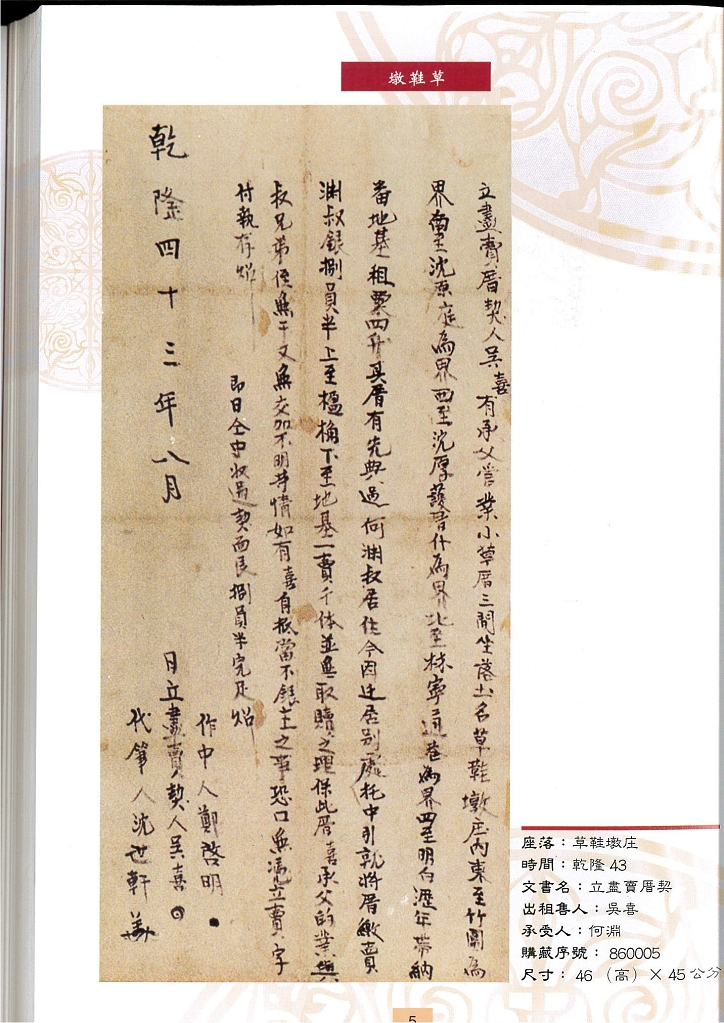 墩鞋草
立盡賣厝契人吳喜有承父管業小草厝三間坐落土名草鞋墩庄內東至竹圍為
界南至沈原庭為界西至沈厚護厝什為界北至林寧通巷為界四至明白遞年帶納
番地基租粟四升其厝有先典過何淵叔居住今因迁居別處托中引就將厝繳賣
淵叔銀捌員半上至楹桷下至地基一賣千休並無取贖之理保此厝喜承父的業與
叔兄弟侄無干又無交加不明等情如有喜自抵當不銀主之事恐口無憑立賣字
付執存炤
即日仝中收過契面艮捌員半完足炤
作中人鄭啓明
乾隆四十三年八月 日立盡賣契人吳喜
代筆人沈世軒
座落：草鞋墩庄
時間：乾隆43
文書名：立盡賣厝契
出租售人：吳喜
承受人：何淵
購藏序號：860005
尺寸：46（高）×45公分
5